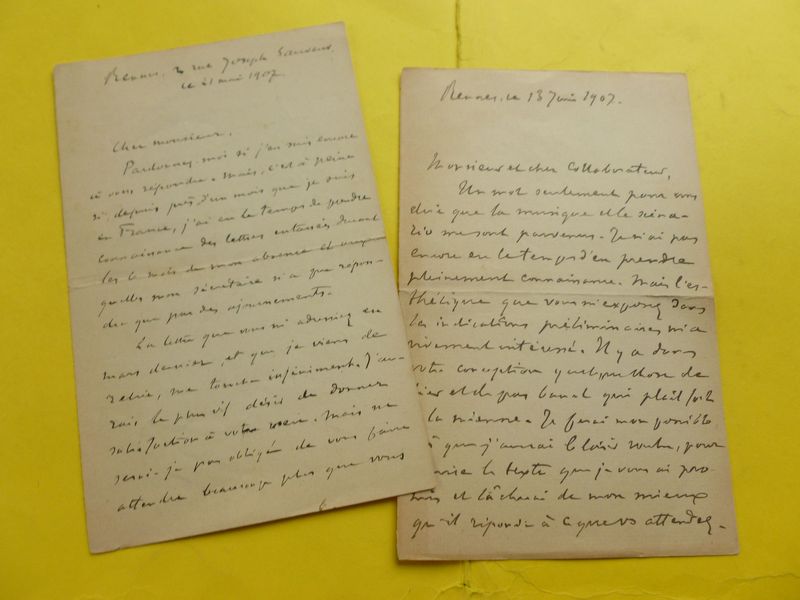 Rennes, 2 rue Joseph Sauveur
le 21 mai 1907.
Cher monsieur,
Pardonnez-moi si j'en suis encore
à vous répondre. Mais, c'est à peine
si, depuis près d'un mois que je suis
en France, j'ai eu le temps de prendre
connaissance des lettres entassées durant
les mois de mon absence et
quelles mon secrétaire n'a pu répon-
dre que par des ajournements.
La lettre que vous m'adressiez en
mars dernier, et que je viens de
relire, me touche infiniment. J'au-
rais le plus vif désir de donner
satisfaction à votre vœu. Mais ne
serai-je pas obligé de vous faire
attendre beaucoup plus que vous
Rennes, ce 13 juin 1907.
Monsieur et cher Collaborateur,
Un mot seulement pour vous
dire que la musique et le scéna-
rio me sont parvenus. Je n'ai pas
encore eu le temps d'en prendre
pleinement connaissance. Mais l'es-
thétique que vous m'exposez dans
les indications préliminaires m'a
vivement intéressé. Il y a dans
votre conception quelque chose de
et de pas banal qui plaît fort
la mienne. Je ferai mon possible
que j'aurai le loisir voulu, pour
le texte que je vous ai pro-
mis et tâcherai de mon mieux
qu'il réponde à ce que vs attendez.